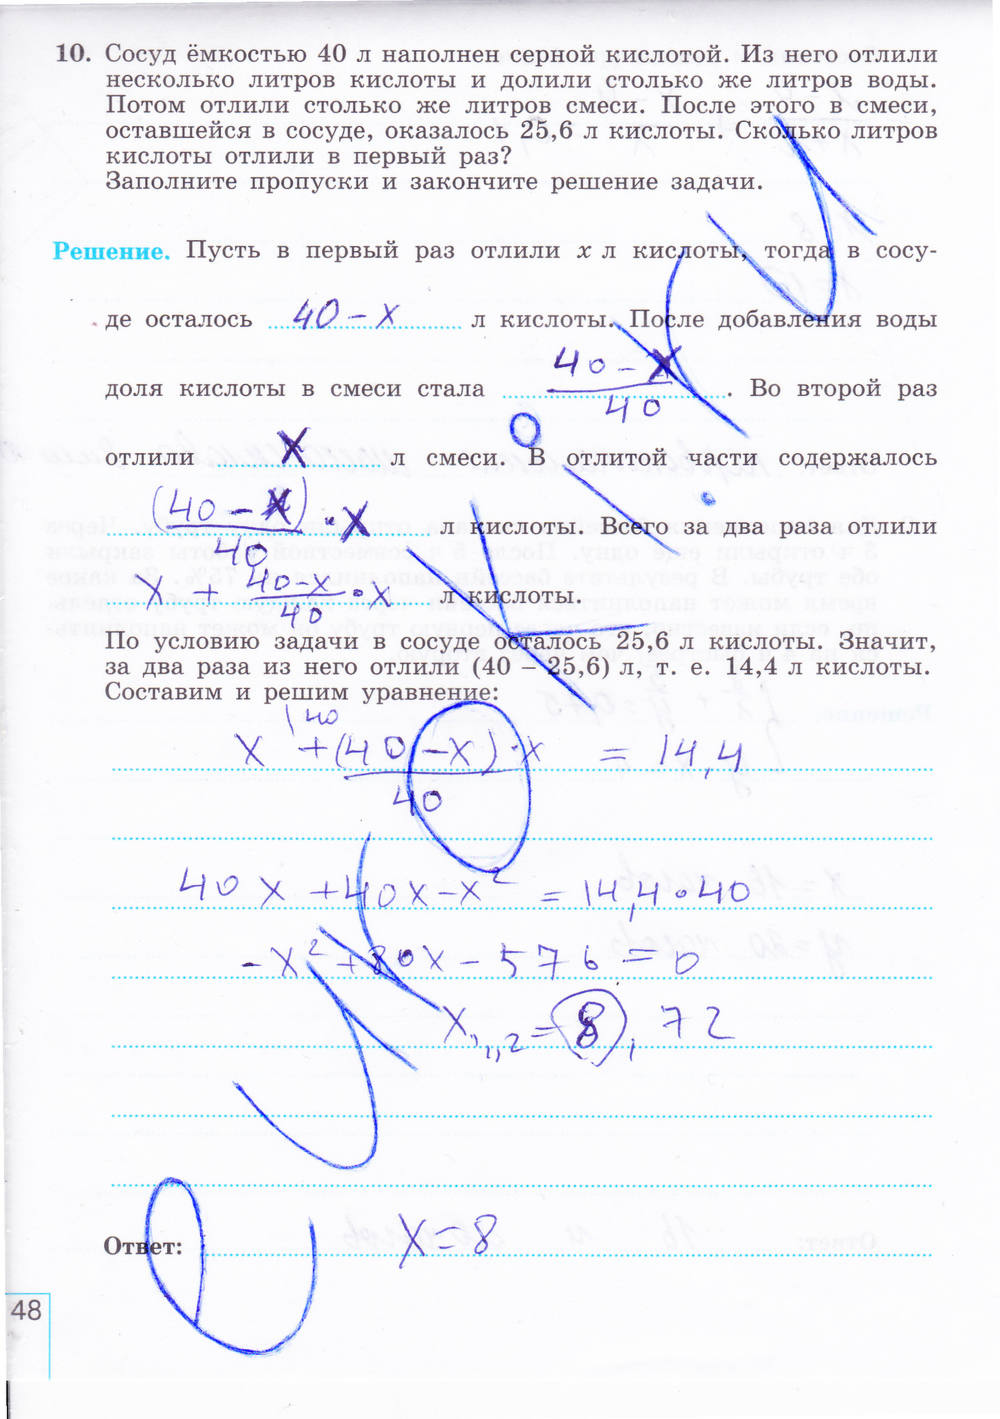 10. Сосуд ёмкостью 40 л наполнен серной кислотой. Из него отлили
несколько литров кислоты и долили столько же литров воды.
Потом отлили столько же литров смеси. После этого в смеси,
оставшейся в сосуде, оказалось 25,6 л кислоты. Сколько литров
кислоты отлили в первый раз?
Заполните пропуски и закончите решение задачи.
Решение. Пусть в первый раз отлили x л кислоты, тогда в сосу-
де осталось 40 - x л кислоты. После добавления воды
доля кислоты в смеси стала (40 - x)/40. Во второй раз
отлили x л смеси. В отлитой части содержалось
(40 - x)/40 · x л кислоты. Всего за два раза отлили
x + (40-x)/40 · x л кислоты.
По условию задачи в сосуде осталось 25,6 л кислоты. Значит,
за два раза из него отлили (40 – 25,6) л, т. е. 14,4 л кислоты.
Составим и решим уравнение:
x \40 + (40 - x) · x / 40 = 14,4
40x + 40x - x² = 14,4 · 40
-x² + 80x - 576 = 0
x₁,₂ = 8, 72
Ответ: x = 8
48